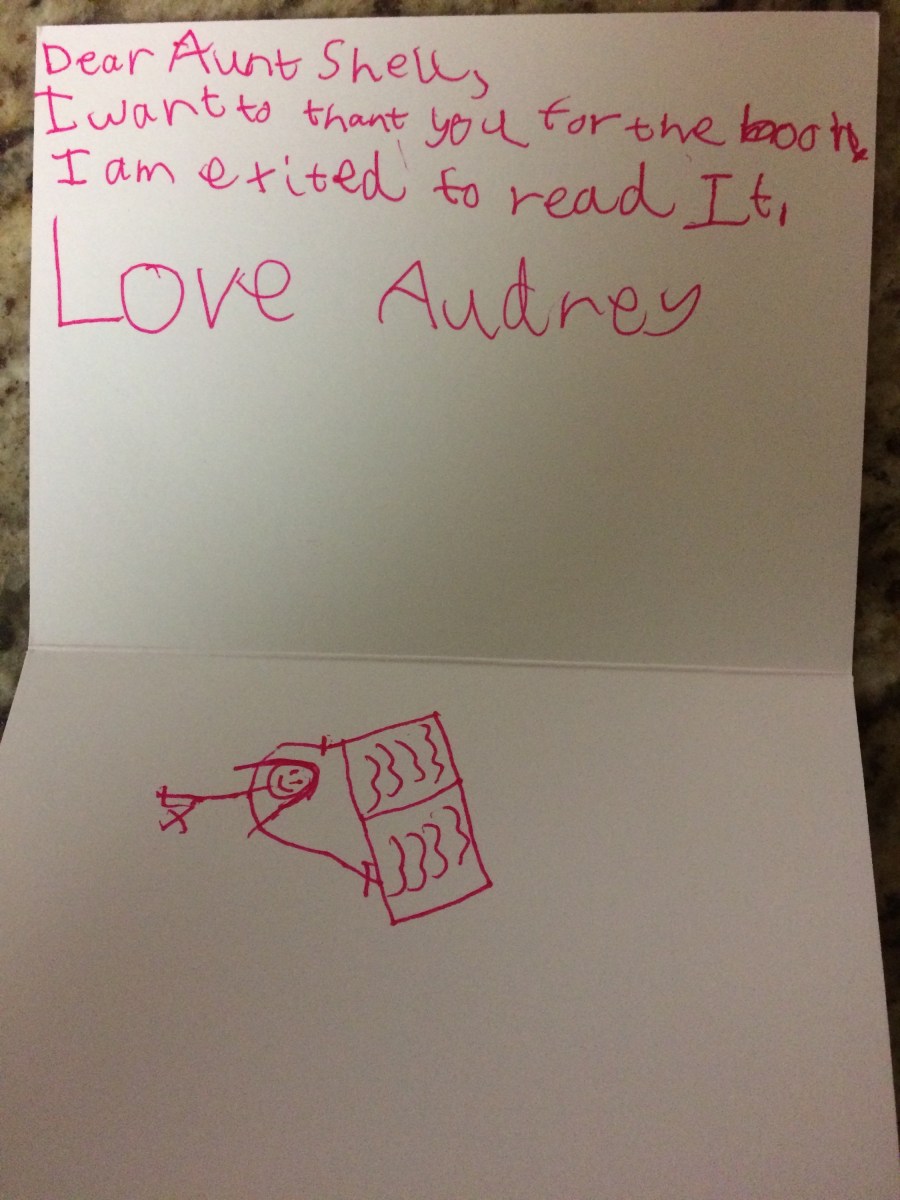 Dear Aunt Shell,
I want to thant you for the book.
I am exited to read It.
Love Audrey